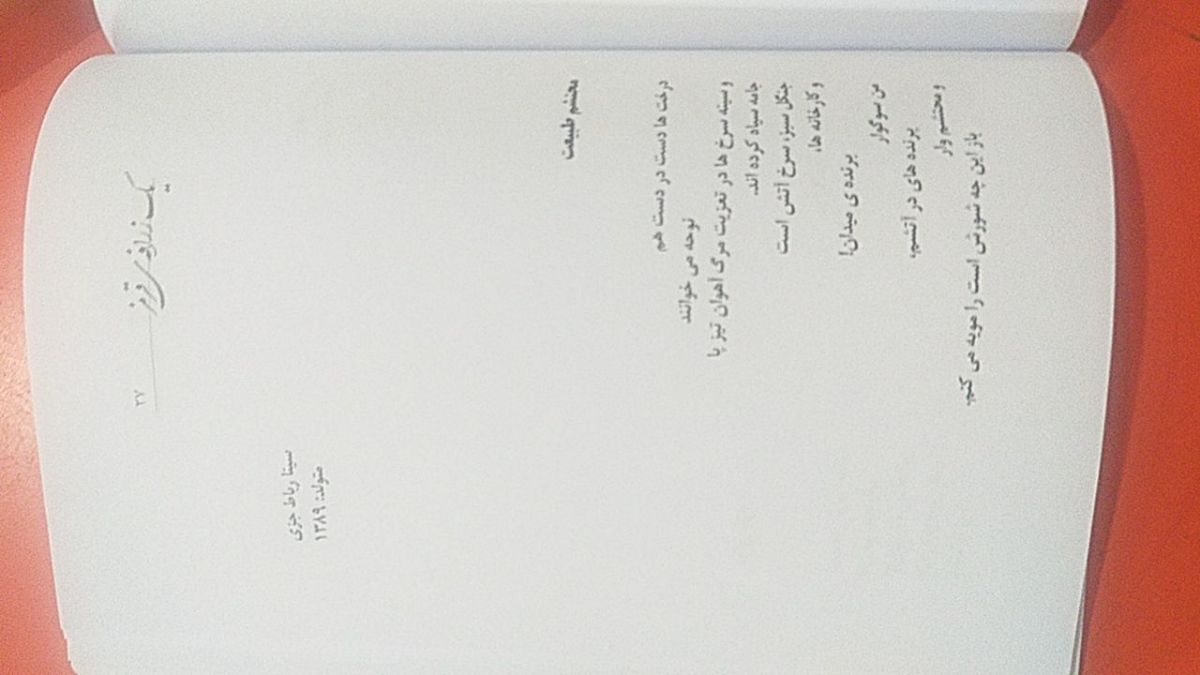 یک زرافه‌ی قرمز
۲۷
سینا رباط جزی
متولد: ۱۳۸۹
محتشم طبیعت
درخت ها دست در دست هم
نوحه می خوانند
و سینه سرخ ها در تعزیت مرگ آهوان تیز پا
جامه سیاه کرده اند.
جنگل سبز، سرخ آتش است
و کارخانه ها،
برنده ی میدان!
من سوگوار
پرنده های در آتشم،
و محتشم وار
باز این چه شورش است را مویه می کنم.